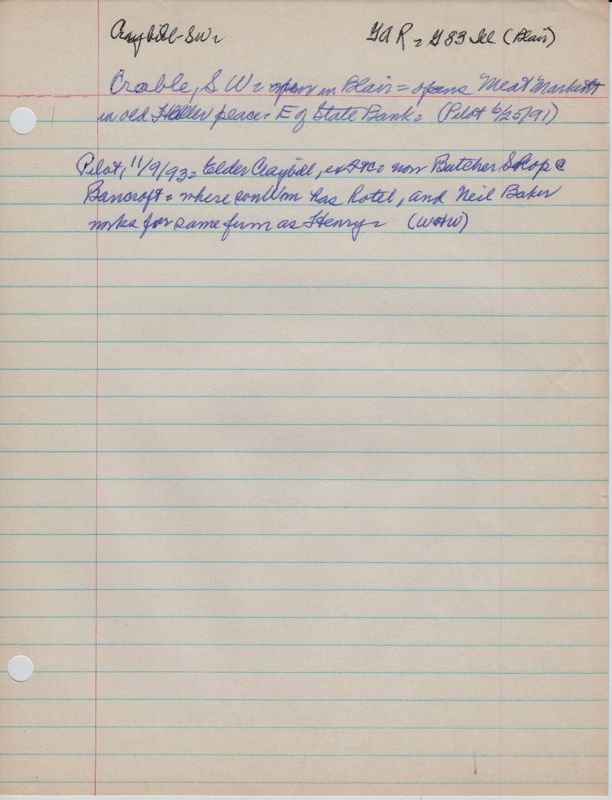 Craybill-SW= GAR = G 83 Ill (Blair)
Crable, S W = in Blair = opens Meat Markett
in old Heller place = E of State Bank = (Pilot 6/25/91)
Pilot, 11/9/93 = Elder Craybill, = now Butcher Shop @
Bancroft = where son Wm has hotel, and Neil Baker
works for same firm as Henry = (WOHW)